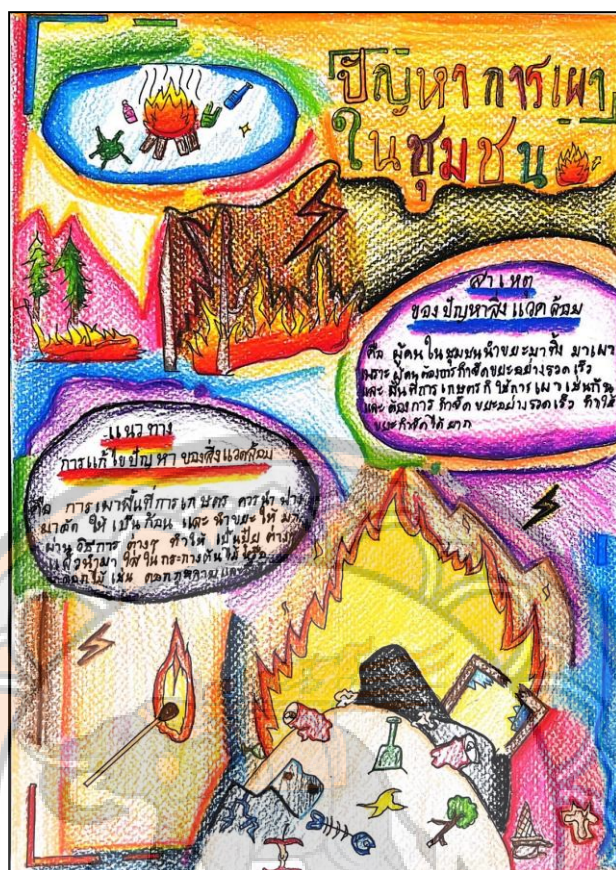 ปัญหาการเผา
ในชุมชน
สาเหตุ
ของปัญหาสิ่งแวดล้อม
คือ ผู้คนในชุมชนนำขยะมาทิ้ง มาเผา
เพราะ ผู้คนต้องการกำจัดขยะอย่างรวดเร็ว
และ พื้นที่การเกษตรก็ใช้การเผาเช่นกัน
และ ต้องการกำจัดขยะอย่างรวดเร็ว ทำให้
ขยะกำจัดได้ยาก
แนวทาง
การแก้ไขปัญหาของสิ่งแวดล้อม
คือ การเผาพื้นที่การเกษตร ควรนำฟาง
มาอัด ให้เป็นก้อน และ นำขยะ ให้มา
ผ่านวิธีการต่างๆ ทำให้ เป็นปุ๋ย ต่างๆ
แล้วนำมา ใส่ในกระถางต้นไม้ หรือ
ดอกไม้ เช่น ดอกกุหลาบ